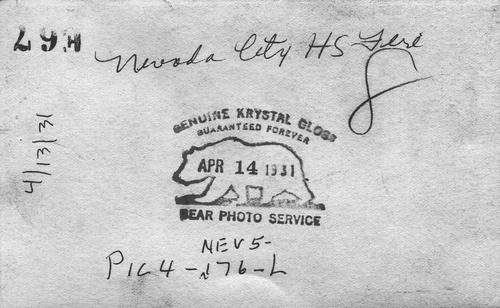 Nevada City HS
4/13/31
GENUINE KRYSTAL GLOSS
GUARANTEED FOREVER
APR 14 1931
BEAR PHOTO SERVICE
NEV5-
PIC4-176-L